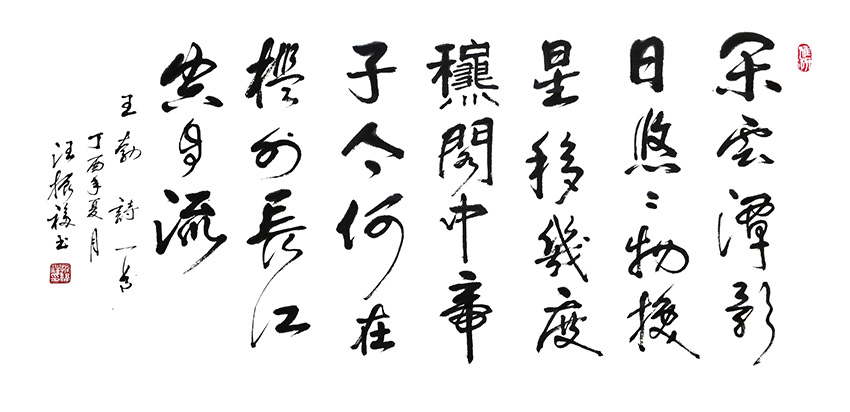 閑雲潭影
日悠〻物換
星移幾度
龝閣中帝
子今何在
檻外長江
空自流
王勃詩一首
丁酉年夏月
汪振书